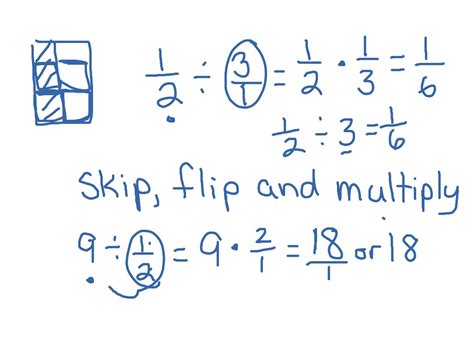 1/2 ÷ 3/1 = 1/2 · 1/3 = 1/6
1/2 ÷ 3 = 1/6
skip, flip and multiply
9 ÷ 1/2 = 9 · 2/1 = 18/1 or 18